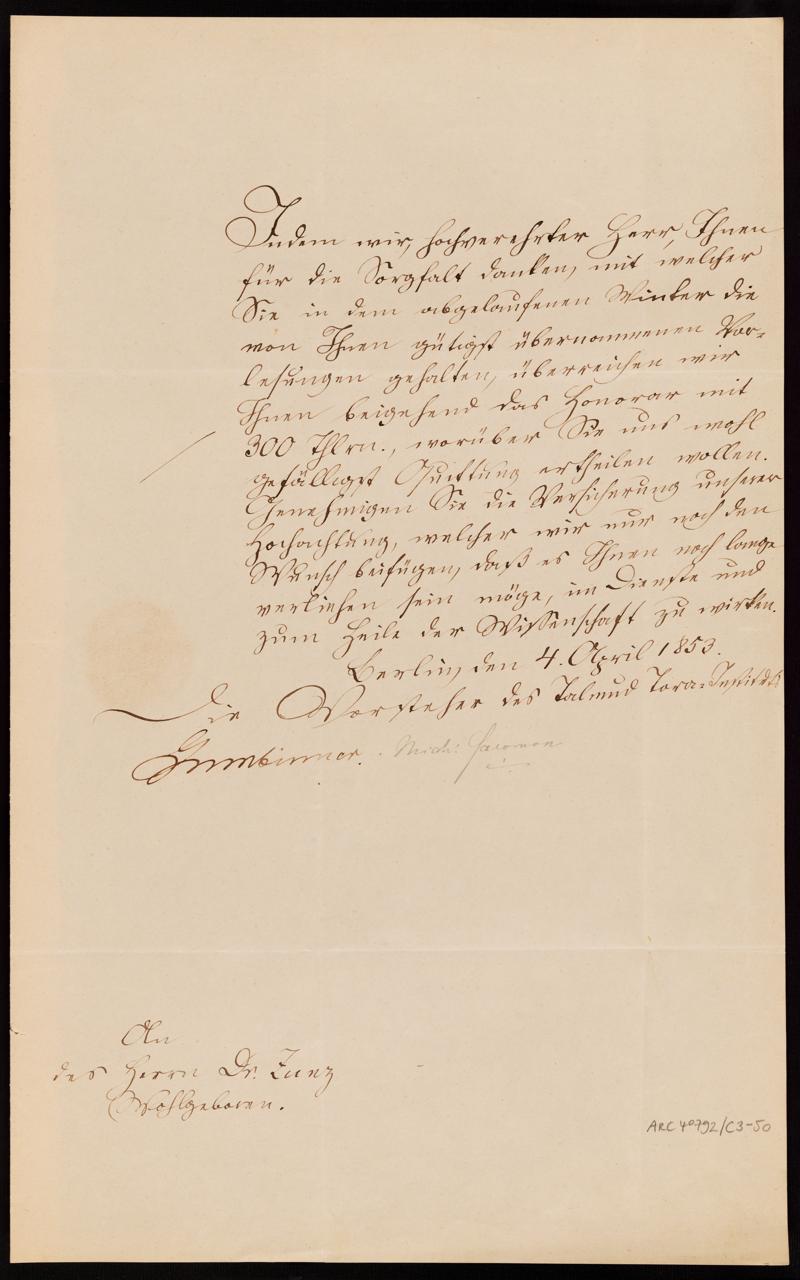 Indem wir, hochverehrter Herr, Ihnen
für die Sorgfalt danken, mit welcher
Sie in dem abgelaufenen Winter die
von Ihnen gütigst übernommenen Vor-
lesungen gehalten, überreichen wir
Ihnen beigehend das Honorar mit
300 Thlrn., worüber Sie uns wohl
gefälligst Quittung ertheilen wollen.
Genehmigen Sie die Versicherung unserer
Hochachtung, welcher wir nur noch den
Wunsch beifügen, daß es Ihnen noch lange
verliehen sein möge, im Dienste und
zum Heile der Wissenschaft zu wirken.
Berlin, den 4. April 1853.
Die Vorsteher des Talmud Tora-Instituts
Gumbinner.
An
des Herrn Dr. Zunz
Wohlgeboren.
ARC 4°792/C3-50